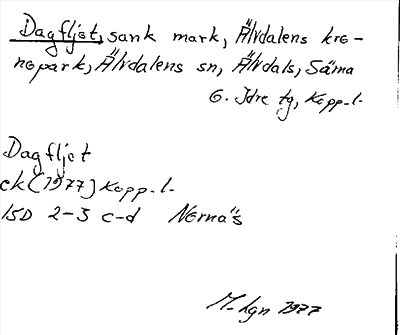 Dagfljot, sank mark, Älvdalens kro-
nopark, Älvdalens sn, Älvdals, Särna
o. Idre tg, Kopp.l.
Dagfljot
ek (1977) Kopp.l.
15D 2-3 c-d Nornäs
M-lgn 1977